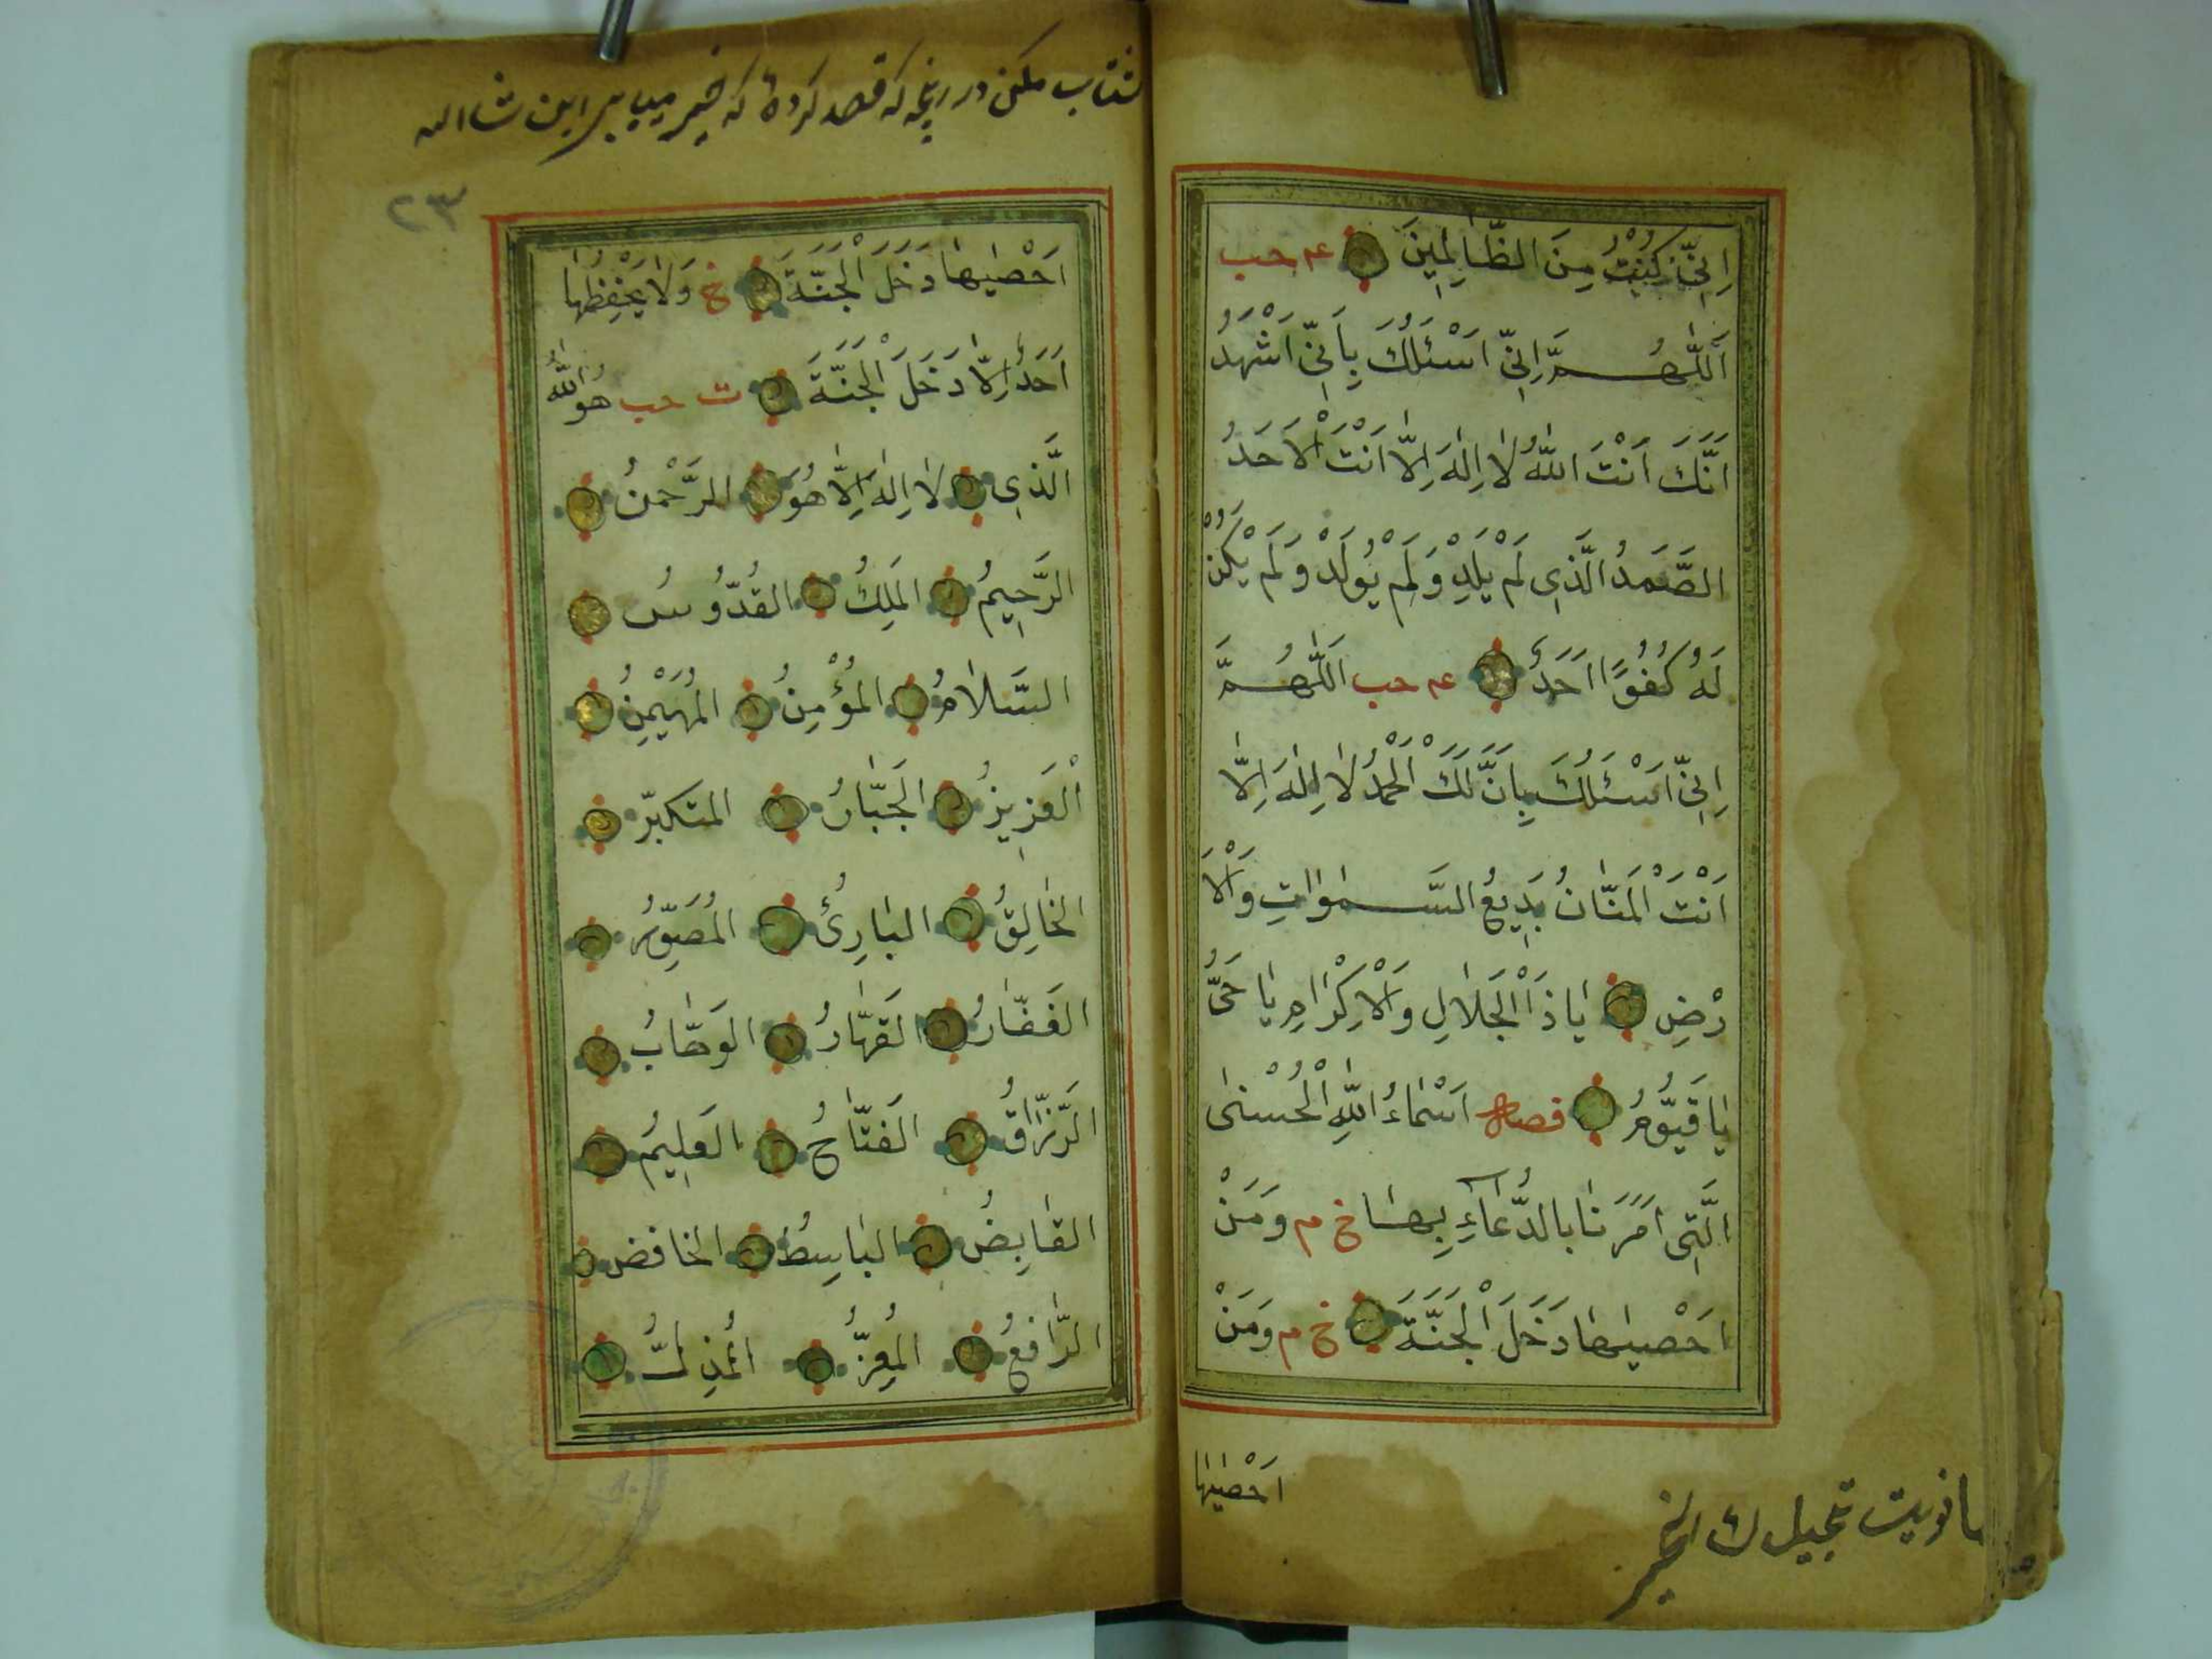 اِنِّي كُنْتُ مِنَ الظَّالِمِينَ عه حب
اَللّٰهُمَّ اِنِّي اَسْئَلُكَ بِاَنِّي اَشْهَدُ
اَنَّكَ اَنْتَ اللّٰهُ لَا اِلٰهَ اِلَّا اَنْتَ الْاَحَدُ
الصَّمَدُ الَّذِي لَمْ يَلِدْ وَلَمْ يُولَدْ وَلَمْ يَكُنْ
لَهُ كُفُوًا اَحَدٌ عه حب اَللّٰهُمَّ
اِنِّي اَسْئَلُكَ بِاَنَّ لَكَ الْحَمْدُ لَا اِلٰهَ اِلَّا
اَنْتَ الْمَنَّانُ بَدِيعُ السَّمٰوَاتِ وَالْاَ
رْضِ يَا ذَا الْجَلَالِ وَالْاِكْرَامِ يَا حَيُّ
يَا قَيُّومُ اَسْمَاءُ اللّٰهِ الْحُسْنٰى
الَّتِي اَمَرَنَا بِالدُّعَاءِ بِهَا خ م وَمَنْ
اَحْصٰيهَا دَخَلَ الْجَنَّةَ خ م وَمَنْ
اَحْصٰيهَا
مانويت تعجيل ك الخير
شتاب مكن در رنجه كه قصد كرده كه خير ميابى اين شاالله
٢٣
اَحْصٰيهَا دَخَلَ الْجَنَّةَ خ وَلَا يَحْفَظُهَا
اَحَدٌ اِلَّا دَخَلَ الْجَنَّةَ ت حب هُوَ اللّٰهُ
الَّذِي لَا اِلٰهَ اِلَّا هُوَ الرَّحْمٰنُ
الرَّحِيمُ الْمَلِكُ الْقُدُّوسُ
السَّلَامُ الْمُؤْمِنُ الْمُهَيْمِنُ
الْعَزِيزُ الْجَبَّارُ الْمتَكَبِّر
الْخَالِقُ الْبَارِئُ الْمُصَوِّرُ
الْغَفَّارُ الْقَهَّارُ الْوَهَّابُ
الرَّزَّاقُ الْفَتَّاحُ الْعَلِيمُ
الْقَابِضُ الْبَاسِطُ الخافض
الرَّافِعُ الْمُعِزُّ الْمُذِلُّ